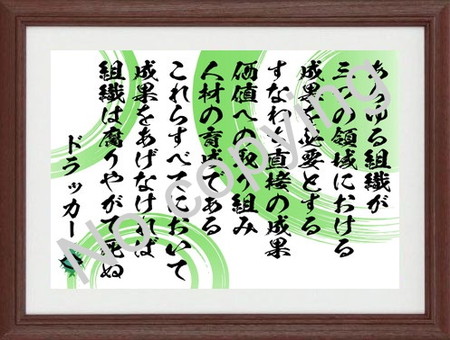 あらゆる組織が
三つの領域における
成果を必要とする
すなわち直接の成果
価値への取り組み
人材の育成である
これらすべてにおいて
成果をあげなければ
組織は腐りやがて死ぬ
ドラッカー
No copying